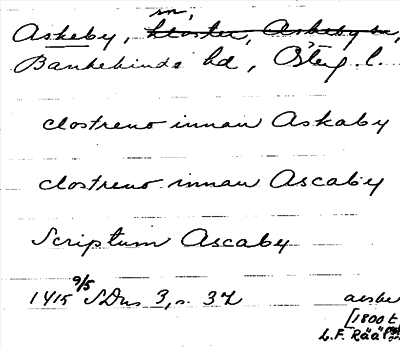 Askeby, sn, kloster, Askeby sn,
Bankekinds hd, Österg. l.
clostreno innan Askaby
clostreno innan Ascaby
Scriptum Ascaby
1415 9/5 SDns 3, s. 32
[1800 t
L.F. Rääf